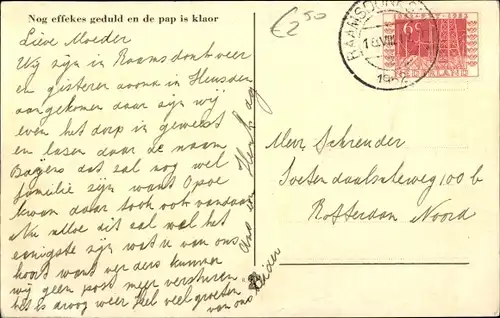 Nog effekes geduld en de pap is klaor
€2 50
RAAMSDONKSVEER
18 VIII
6c
NEDERLAND
Lieve Moeder
Wij zijn in Raamsdonkveer
en gisteren avond in Heusden
aangekomen daar zijn wij
even het dorp in geweest
en lazen daar de naam
Bayers dat zal nog wel
familie zijn want Opoe
kwam daar toch ook vandaan
Nu alloe dit zal wel het
eenigste zijn wat u van ons
hoort want verders kunnen
wij geen post meer versturen
het is droog weer heel veel groeten
van ons
Meur Schreuder
Soeterdaalseweg 100 b
Rotterdam Noord